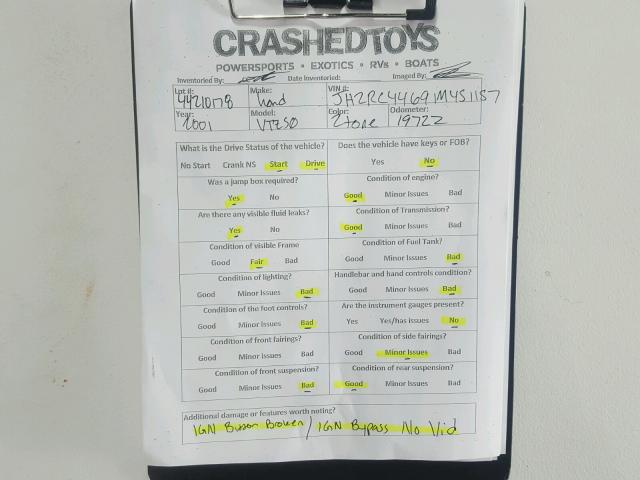 CRASHEDTOYS
POWERSPORTS • EXOTICS • RVs • BOATS
Inventoried By: Date Inventoried: Imaged By:
Lot #: Make: VIN #:
44210178 Hond JH2RC44691M451157
Year: Model: Color: Odometer:
2001 VT750 2tone 19722
What is the Drive Status of the vehicle? Does the vehicle have keys or FOB?
No Start Crank NS Start Drive Yes No
Was a jump box required? Condition of engine?
Yes No Good Minor Issues Bad
Are there any visible fluid leaks? Condition of Transmission?
Yes No Good Minor Issues Bad
Condition of visible Frame Condition of Fuel Tank?
Good Fair Bad Good Minor Issues Bad
Condition of lighting? Handlebar and hand controls condition?
Good Minor Issues Bad Good Minor Issues Bad
Condition of the foot controls? Are the instrument gauges present?
Good Minor Issues Bad Yes Yes/has issues No
Condition of front fairings? Condition of side fairings?
Good Minor Issues Bad Good Minor Issues Bad
Condition of front suspension? Condition of rear suspension?
Good Minor Issues Bad Good Minor Issues Bad
Additional damage or features worth noting?
IGN Buson Broken / IGN Bypass No Vid